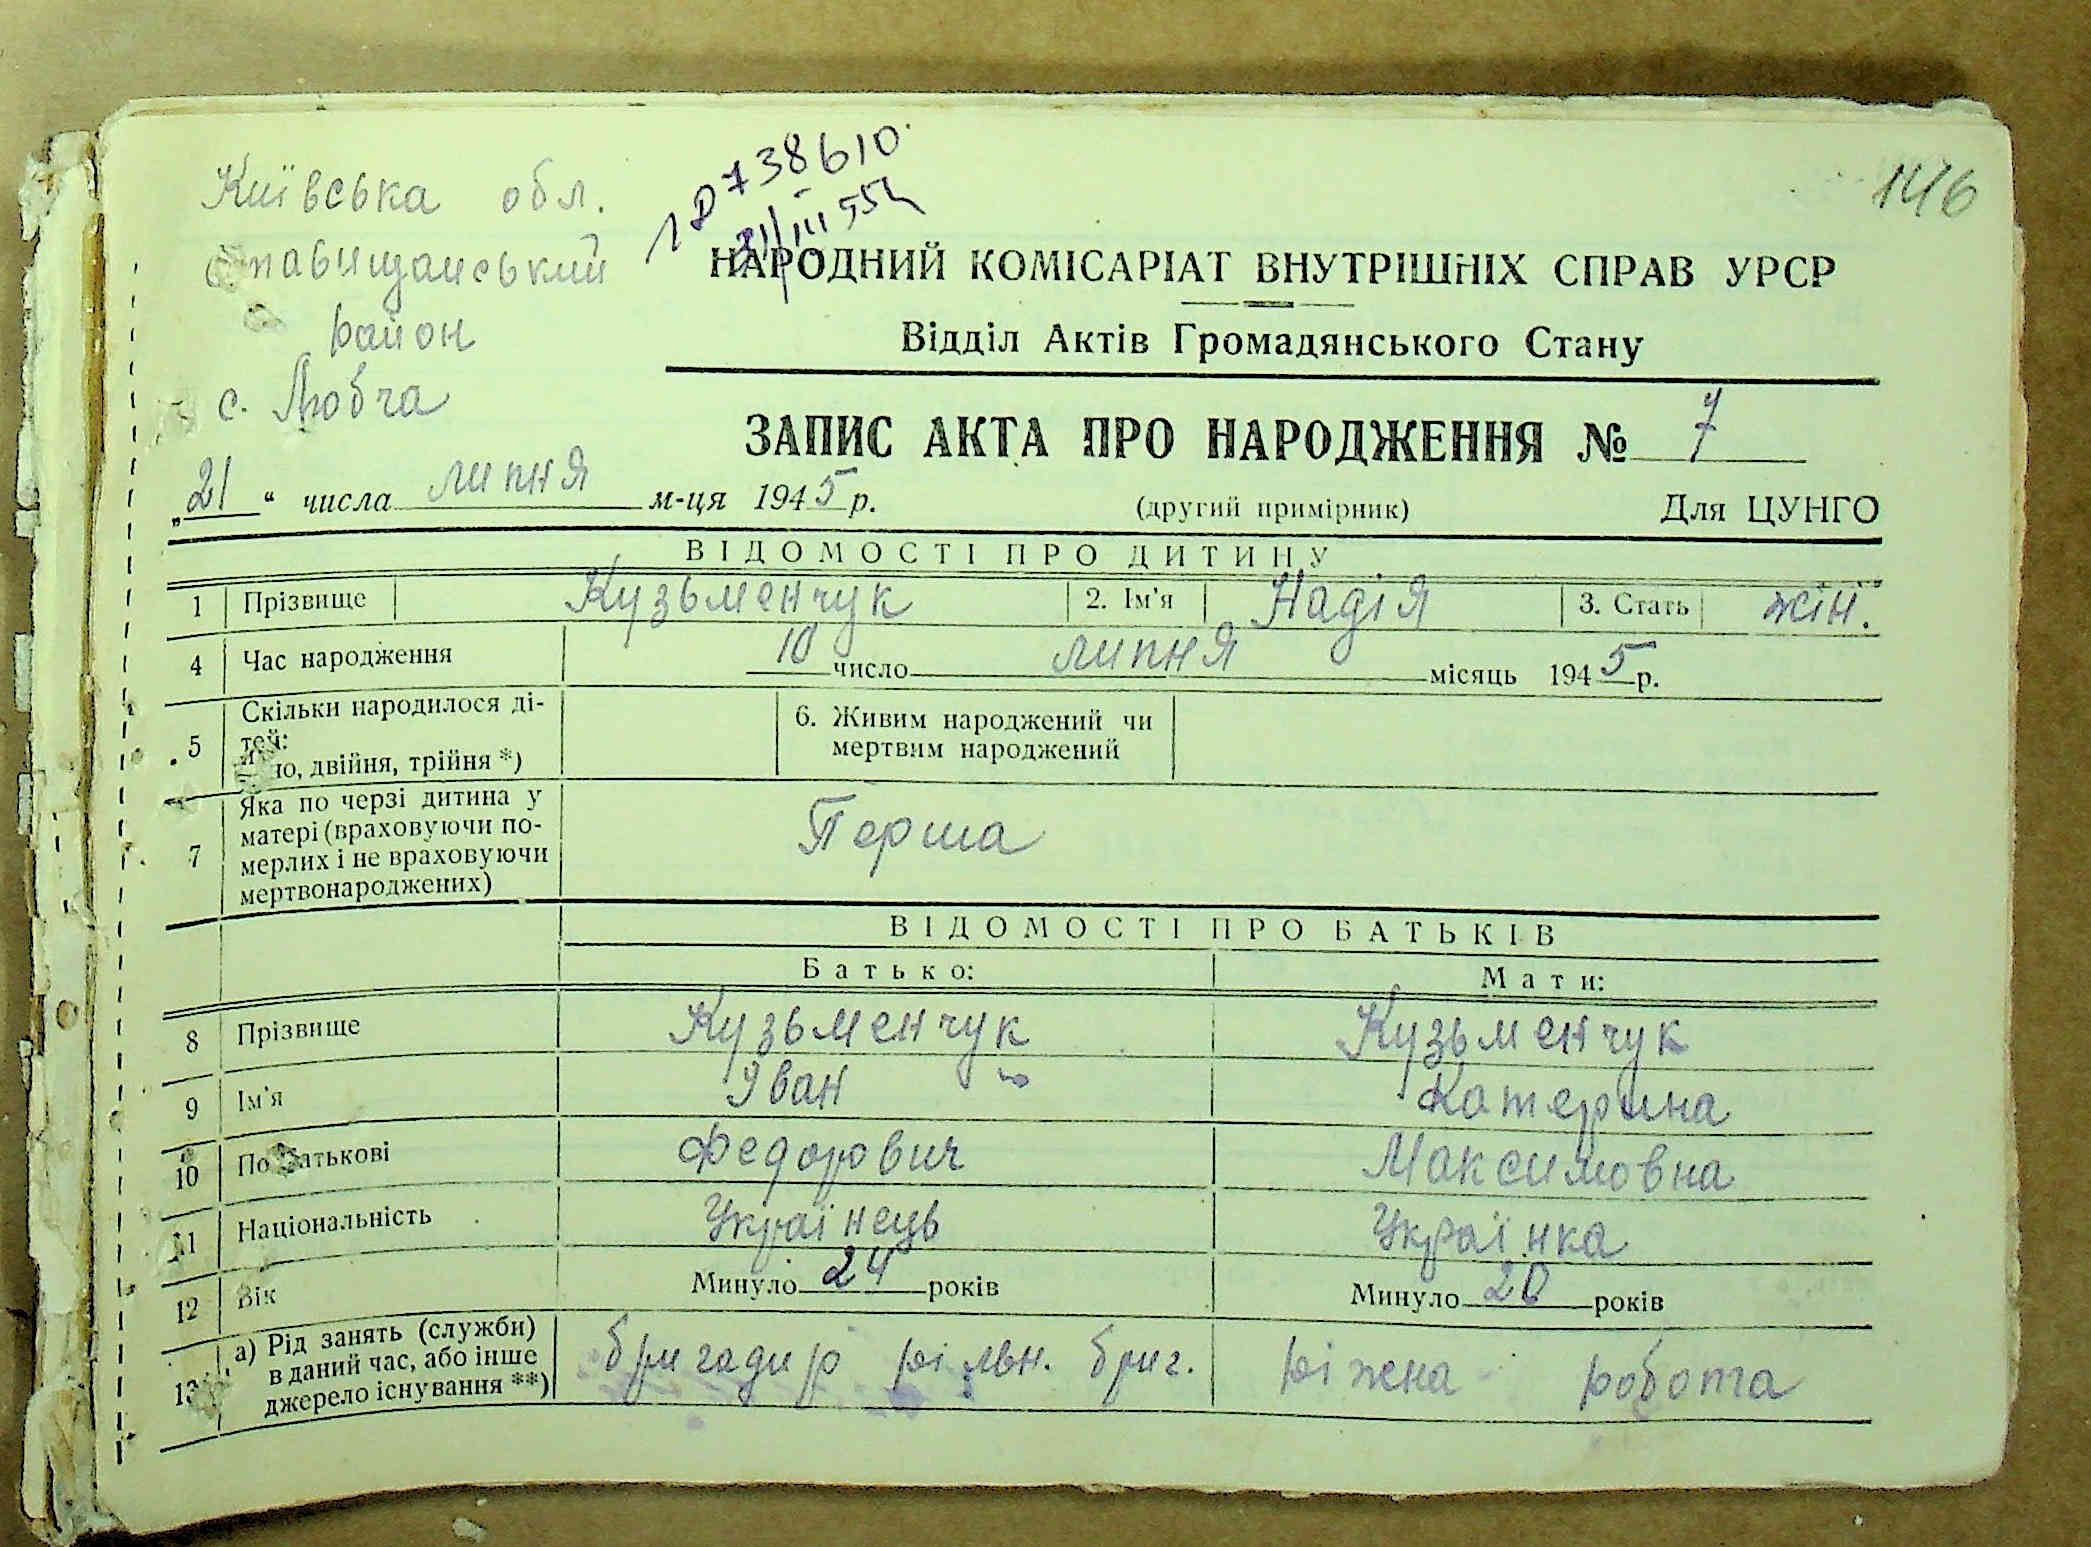 Київська обл.
Ставищанський
район
с. Любча
738610
146
НАРОДНИЙ КОМІСАРІАТ ВНУТРІШНІХ СПРАВ УРСР
Відділ Актів Громадянського Стану
ЗАПИС АКТА ПРО НАРОДЖЕННЯ № 7
„21“ числа липня м-ця 1945 р. (другий примірник) Для ЦУНГО
ВІДОМОСТІ ПРО ДИТИНУ
1 Прізвище Кузьменчук 2. Ім'я Надія 3. Стать жін.
4 Час народження 10 число липня місяць 1945 р.
5 Скільки народилося ді-
тей:
двійня, трійня *)
6. Живим народжений чи
мертвим народжений
7 Яка по черзі дитина у
матері (враховуючи по-
мерлих і не враховуючи
мертвонароджених)
Перша
ВІДОМОСТІ ПРО БАТЬКІВ
Батько: Мати:
8 Прізвище Кузьменчук Кузьменчук
9 Ім'я Іван Катерина
10 По батькові Федорович Максимовна
11 Національність Українець Українка
12 Вік Минуло 24 років Минуло 20 років
13 а) Рід занять (служби)
в даний час, або інше
джерело існування **)
бригадир рільн. бриг. ріжена робота